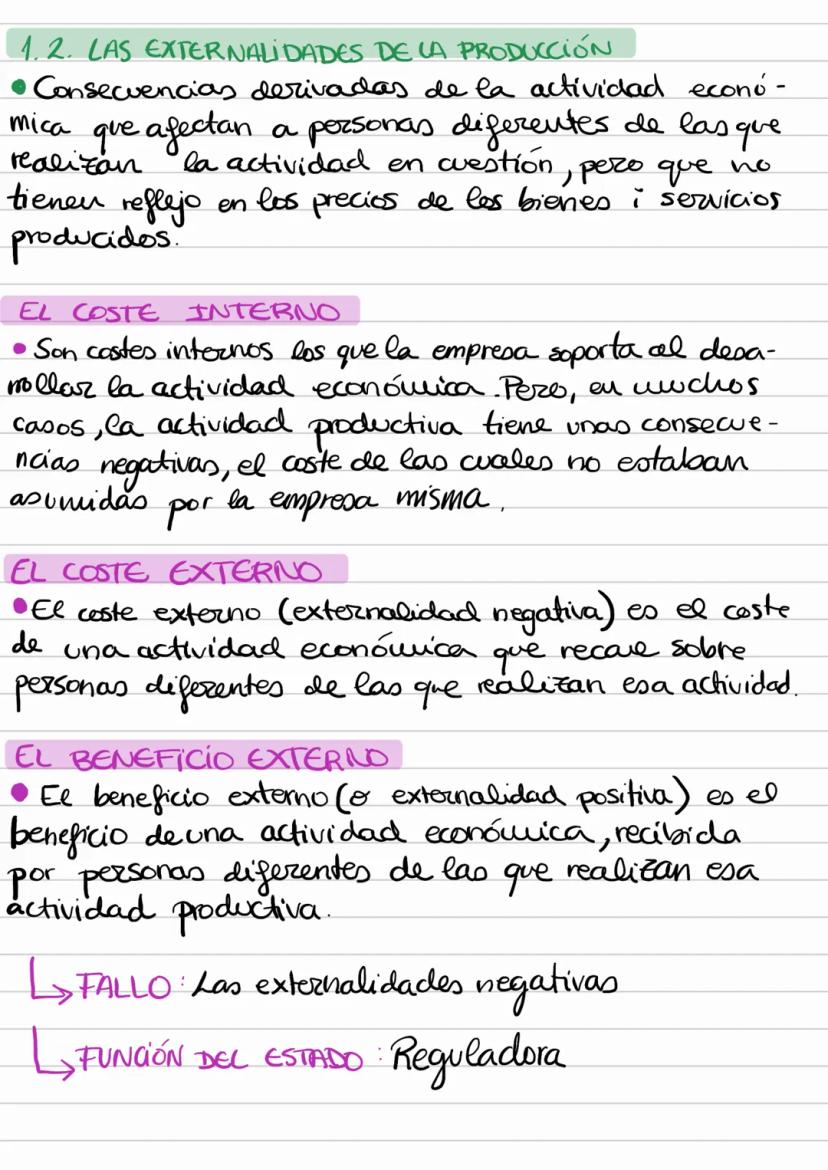 1.2. LAS EXTERNALIDADES DE LA PRODUCCIÓN
• Consecuencias derivadas de la actividad econó-
mica que afectan a personas diferentes de las que
realizan la actividad en cuestión, pero que no
tienen reflejo en los precios de los bienes i servicios
producidos.
EL COSTE INTERNO
• Son costes internos los que la empresa soporta al desa-
rrollar la actividad económica. Pero, en muchos
casos, la actividad productiva tiene unas consecue-
ncias negativas, el coste de las cuales no estaban
asumidas por la empresa misma.
EL COSTE EXTERNO
• El coste externo (externalidad negativa) es el coste
de una actividad económica que recae sobre
personas diferentes de las que realizan esa actividad.
EL BENEFICIO EXTERNO
• El beneficio externo (o externalidad positiva) es el
beneficio de una actividad económica, recibida
por personas diferentes de las que realizan esa
actividad productiva.
↳ FALLO: Las externalidades negativas
↳ FUNCIÓN DEL ESTADO: Reguladora